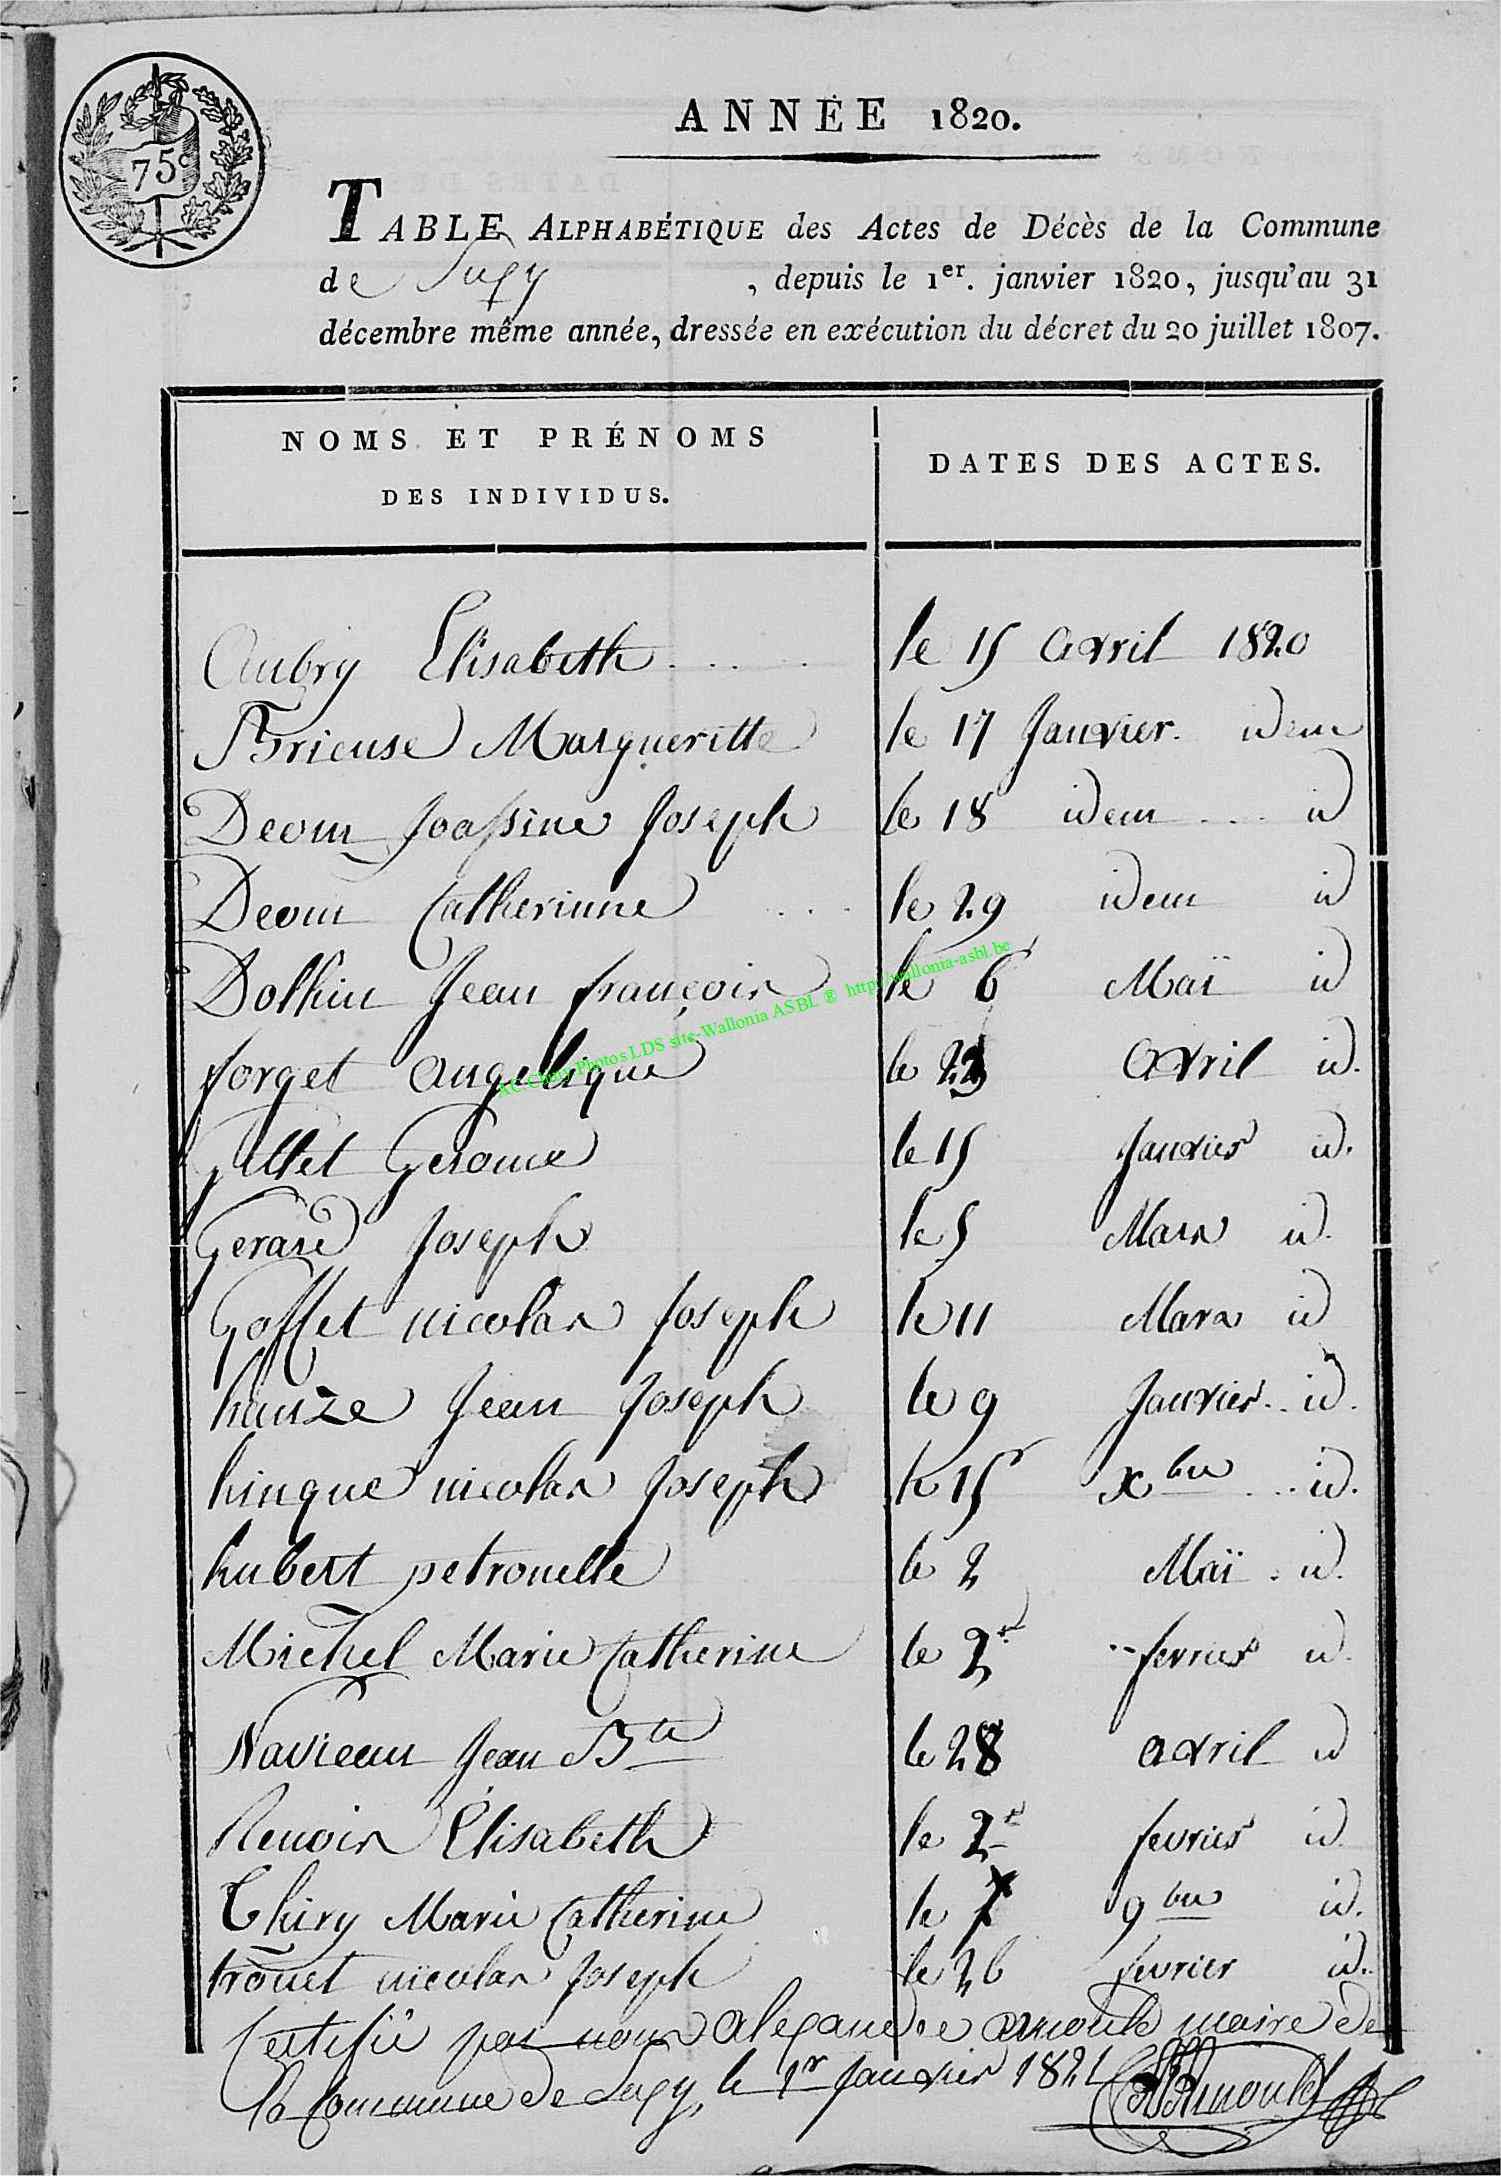 75c
ANNÉE 1820.
TABLE ALPHABÉTIQUE des Actes de Décès de la Commune
de Sugy , depuis le 1er. janvier 1820, jusqu'au 31
décembre même année, dressée en exécution du décret du 20 juillet 1807.
NOMS ET PRÉNOMS
DES INDIVIDUS.
DATES DES ACTES.
Aubry Elisabeth . . . . le 15 avril 1820
Brieuse Margueritte le 17 Janvier. idem
Deom Joassine Joseph le 18 idem .... id
Deom Catherinne . . . le 29 idem id
Dolhin Jean françois le 6 Maï id
forget angelique le 23 avril id.
Gillet Gerome le 15 Janvier id.
Gerard Joseph le 5 Mars id.
Goffet nicolas Joseph le 11 Mars id
hanze Jean Joseph le 9 Janvier .. id.
hinque nicolas Joseph le 15 xbre ... id.
hubert petronelle le 2 Maï . id.
Michel Marie Catherine le 2 fevrier id.
Naviaux Jean Bte le 28 avril id
Renoir Elisabeth le 2 fevrier id
Thiry Marie Catherine le 7 9bre id.
trouet nicolas Joseph le 26 fevrier id.
Certifié par nous alexandre arnould maire de
la Commune de Sugy, le 1r Janvier 1821 Arnould
AC Chiny Photos LDS site-Wallonia ASBL ® http://wallonia-asbl.be